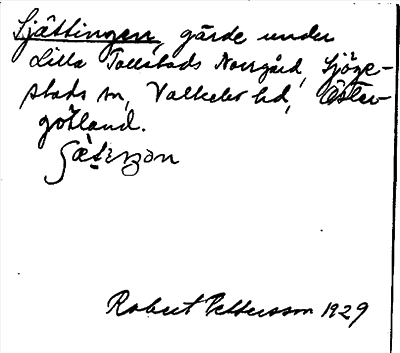 Sjättingen, gärde under
Lilla Tollstads Norrgård, Sjöge-
stads sn, Valkebo hd, Öster-
götland.
Robert Pettersson 1929